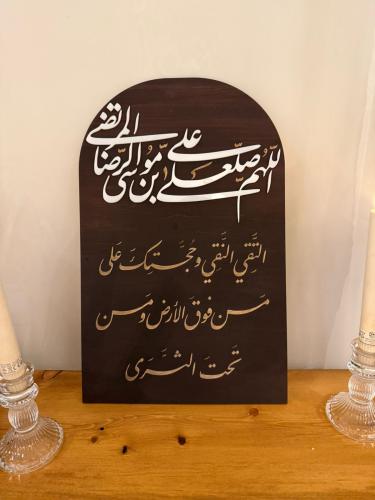 اللّهمّ صلّ علی علی بن موسی الرّضا المرتضی
التَّقِي النَّقِي وحُجَّتِكَ عَلی
مَن فوقَ الأرض ومَن
تَحتَ الثَّرَی